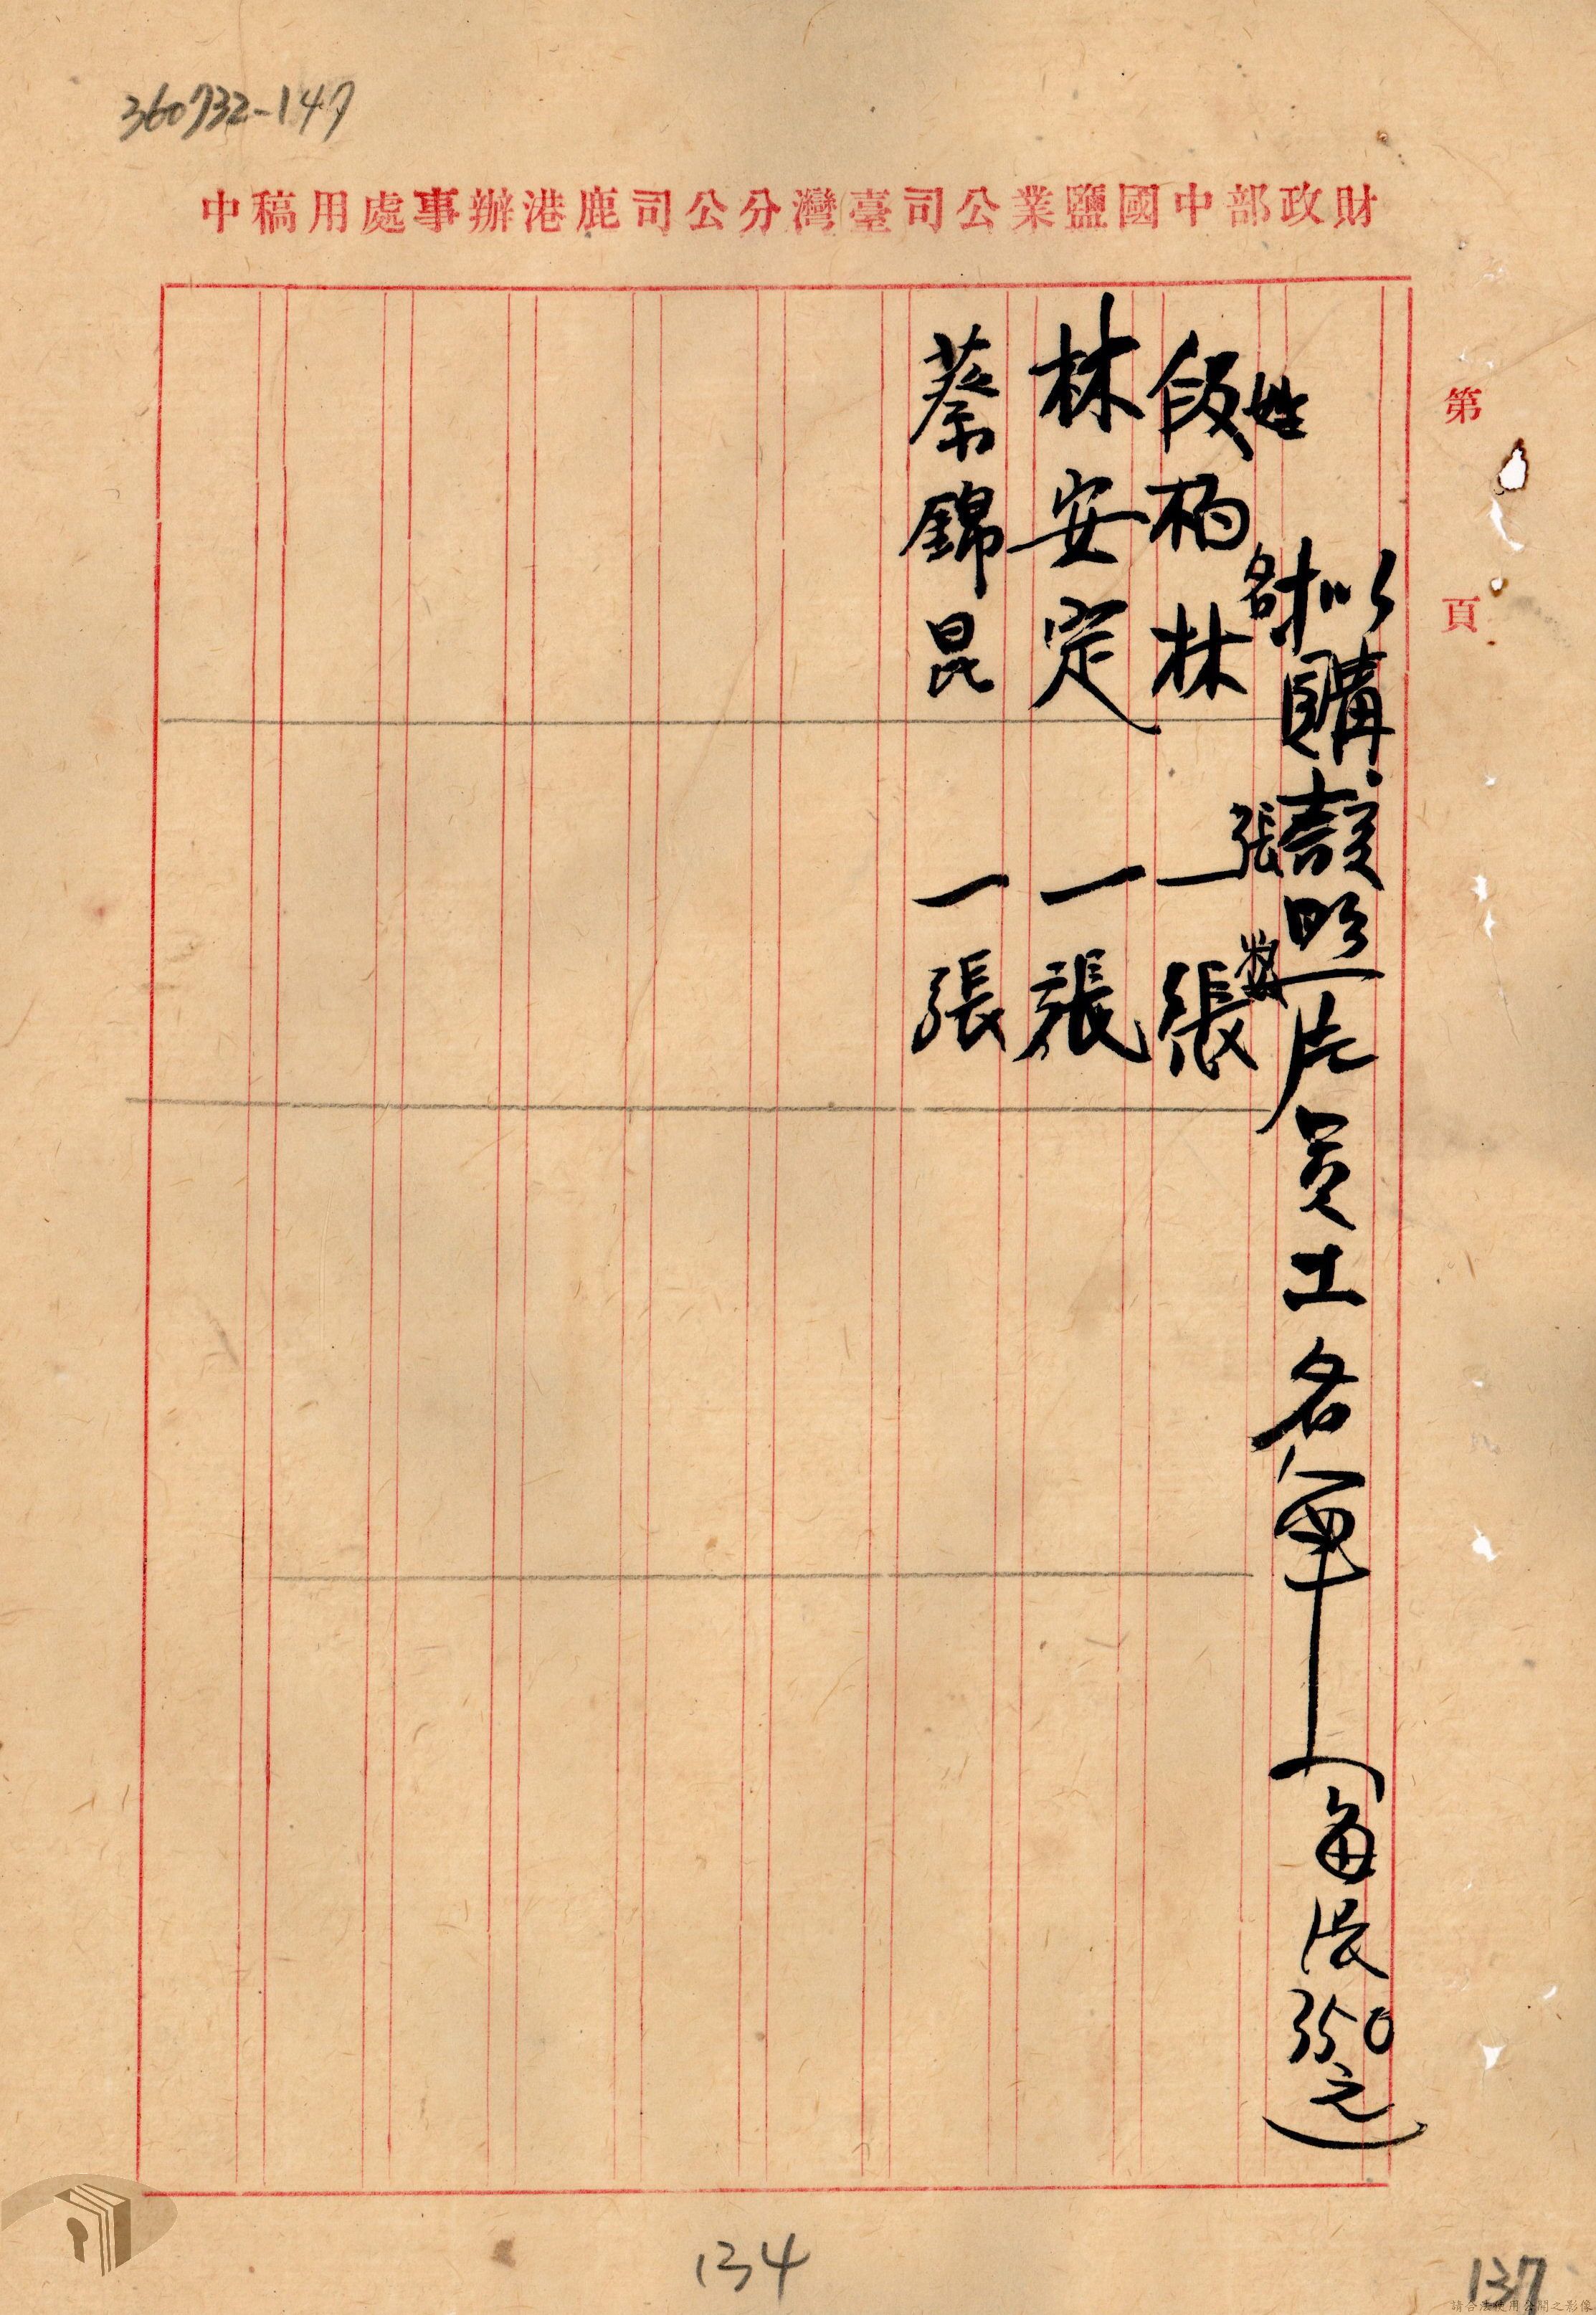 360732-147
財政部中國鹽業公司臺灣分公司鹿港辦事處用稿中
第 頁
拟購照片員工名單(每張350元)
姓 名 張数
段柏林 一張
林安定 一張
蔡錦昆 一張
134
137
請合法使用公開之影像